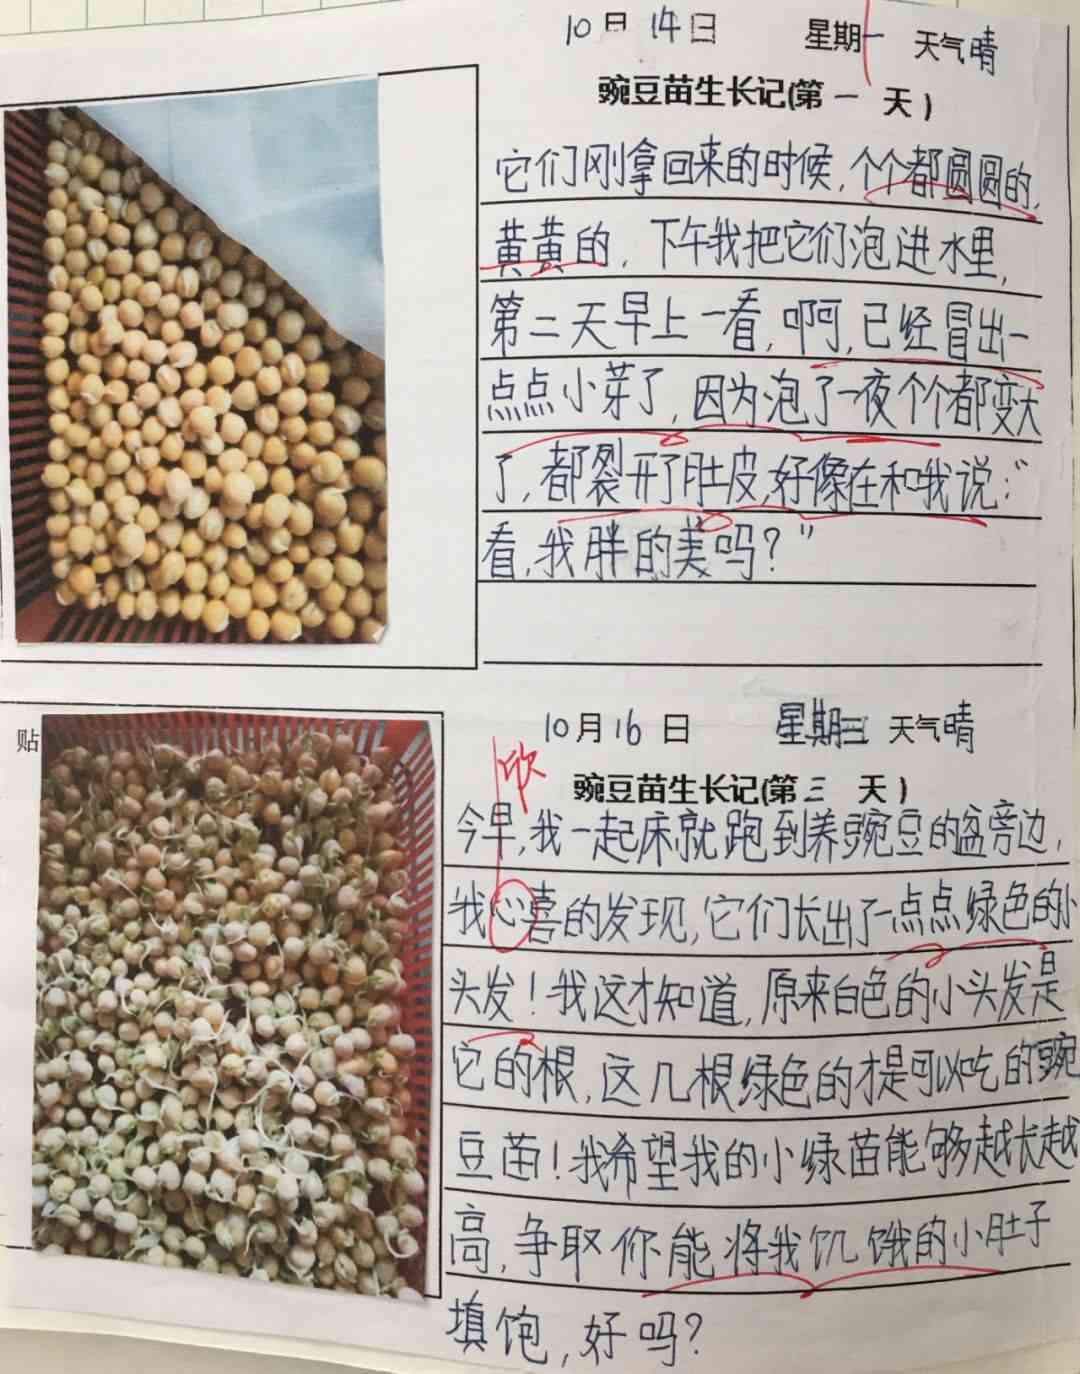 10月14日 星期一 天气晴
豌豆苗生长记(第一天)
它们刚拿回来的时候,个个都圆圆的,
黄黄的,下午我把它们泡进水里,
第二天早上一看,啊,已经冒出一
点点小芽了,因为泡了一夜个个都变大
了,都裂开了肚皮,好像在和我说:“
看,我胖的美吗?”
贴
10月16日 星期三 天气晴
欣
豌豆苗生长记(第三天)
今早,我一起床就跑到养豌豆的盆旁边,
我心喜的发现,它们长出了一点点绿色的小
头发!我这才知道,原来白色的小头发是
它的根,这几根绿色的才是可以吃的豌
豆苗!我希望我的小绿苗能够越长越
高,争取你能将我饥饿的小肚子
填饱,好吗?